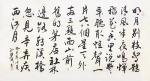 明月別枝驚鵲
清風半夜鳴蟬稻
花香里說豐年
聽取蛙聲一
片七八個星天外
兩三點雨山前
舊時茅店社林
邊路轉溪橋
忽見